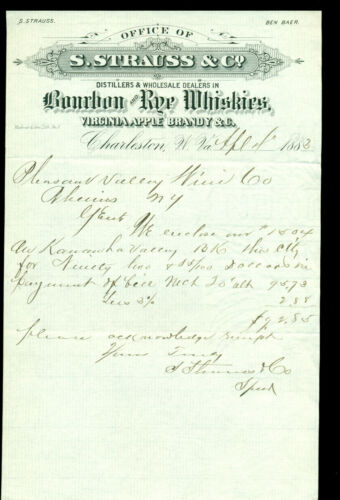 S. STRAUSS.
BEN BAER.
OFFICE OF
S. STRAUSS & CO.
DISTILLERS & WHOLESALE DEALERS IN
Bourbon AND Rye Whiskies,
VIRGINIA APPLE BRANDY & C.
Charleston, W. Va. Apl 1883
Pleasant Valley Wine Co
Rheims NY
Gent
We enclose our no 1504
on Kanawha Valley BK this City
for Ninety two & 85/100 Dollars in
payment of bill Mch 25 alt 95.73
Less 3% 2.88
$92.85
please acknowledge receipt
Yours Truly
S Strauss & Co